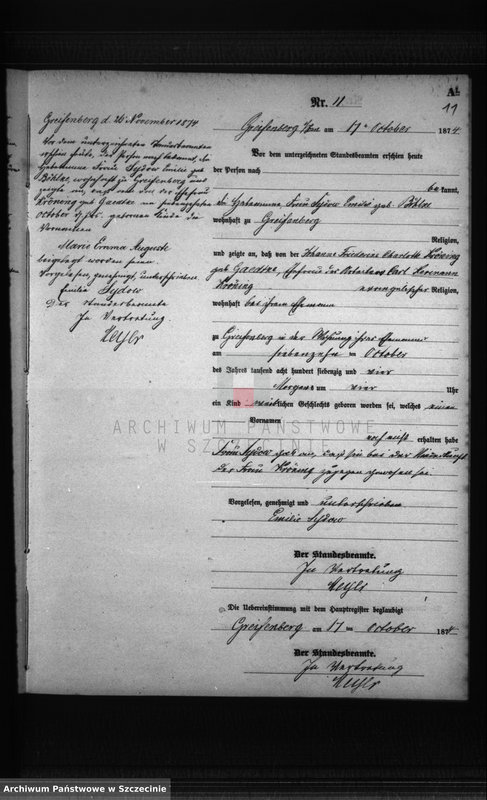 A1
Nr. 11
11
Greifenberg i/Pom am 17ten October 1874.
Vor dem unterzeichneten Standesbeamten erschien heute
der Person nach
bekannt,
die Hebamme, Frau Sydow Emilie geb. Böhlke
wohnhaft zu Greifenberg
Religion,
und zeigte an, daß von der Johanne Friederike Charlotte Kröning
geb. Gaedtke, Ehefrau des Carl Hermann
Kröning evangelischer Religion,
wohnhaft bei ihrem Ehemann
zu Greifenberg in der Wohnung ihres Ehemannes
am siebenzehn ten October
des Jahres tausend acht hundert siebenzig und vier
Morgens um vier Uhr
ein Kind weiblichen Geschlechts geboren worden sei, welches einen
Vornamen
noch nicht erhalten habe
Frau Sydow gab an, daß sie bei der Niederkunft
der Frau Kröning zugegen gewesen sei.
Vorgelesen, genehmigt und unterschrieben
Emilie Sydow
Der Standesbeamte.
In Vertretung
Die Uebereinstimmung mit dem Hauptregister beglaubigt
Greifenberg am 17 ten October 1874
Der Standesbeamte.
In Vertretung
Greifenberg d. 26 November 1874
Vor dem unterzeichneten Standesbeamten
erschien heute, der Person nach bekannt, die
Hebamme Frau Sydow Emilie geb
Böhlke, wohnhaft zu Greifenberg und
zeigte an, daß von der Ehefrau
Kröning geb Gaedtke am siebzehnten
October d. Js. geborenen Kinde die
Vornamen
Marie Emma Auguste
beigelegt worden seien.
Vorgelesen, genehmigt, unterschrieben
Emilie Sydow
Der Standesbeamte
In Vertretung.
ARCHIWUM PAŃSTWOWE
W SZCZECINIE
Archiwum Państwowe w Szczecinie